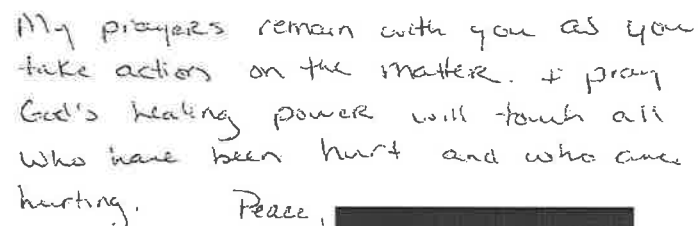 My prayers remain with you as you
take action on the matter. I pray
God's healing power will touch all
who have been hurt and who are
hurting. Peace,